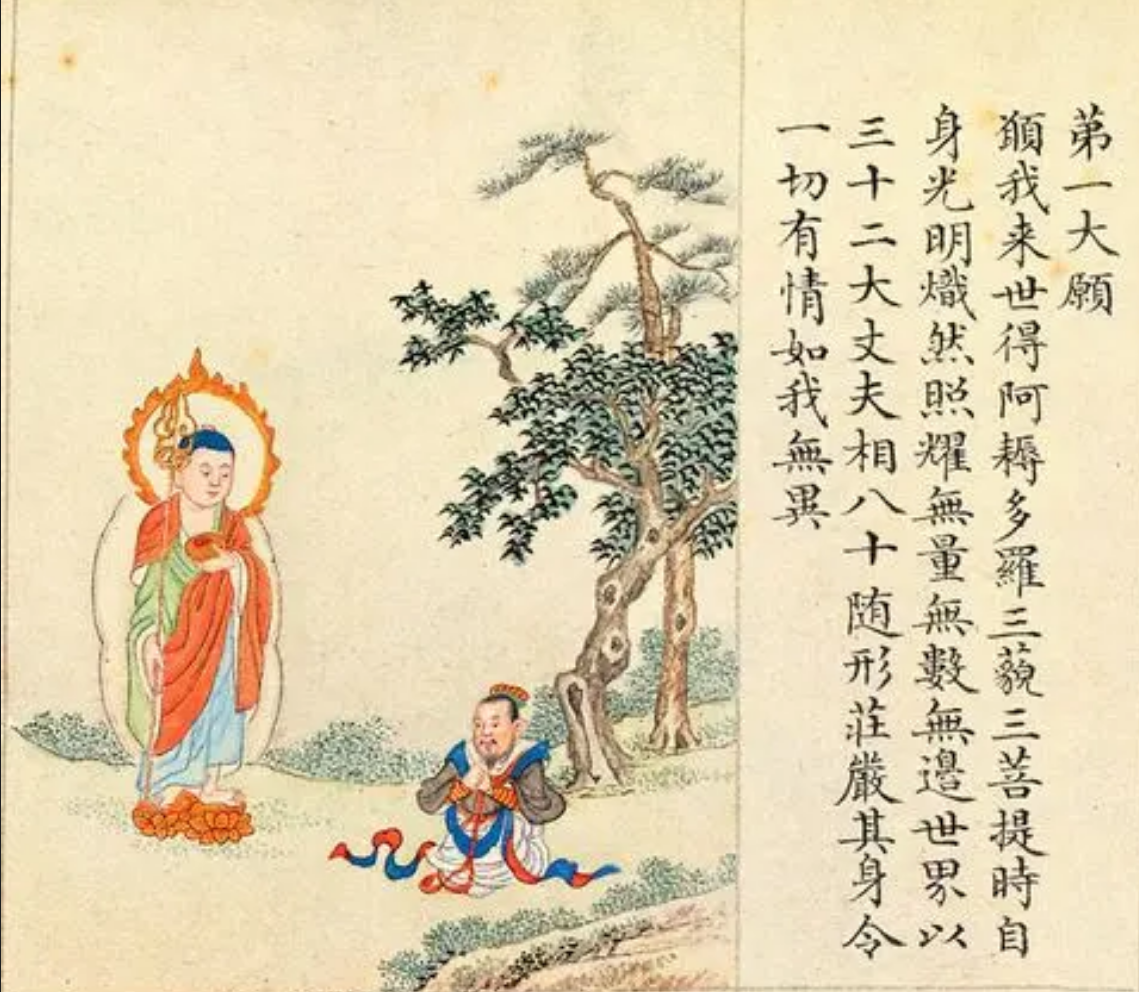 苐一大願
頋我来世得阿耨多羅三藐三菩提時自
身光明熾然照耀無量無數無邊世界以
三十二大丈夫相八十随形莊嚴其身令
一切有情如我無異